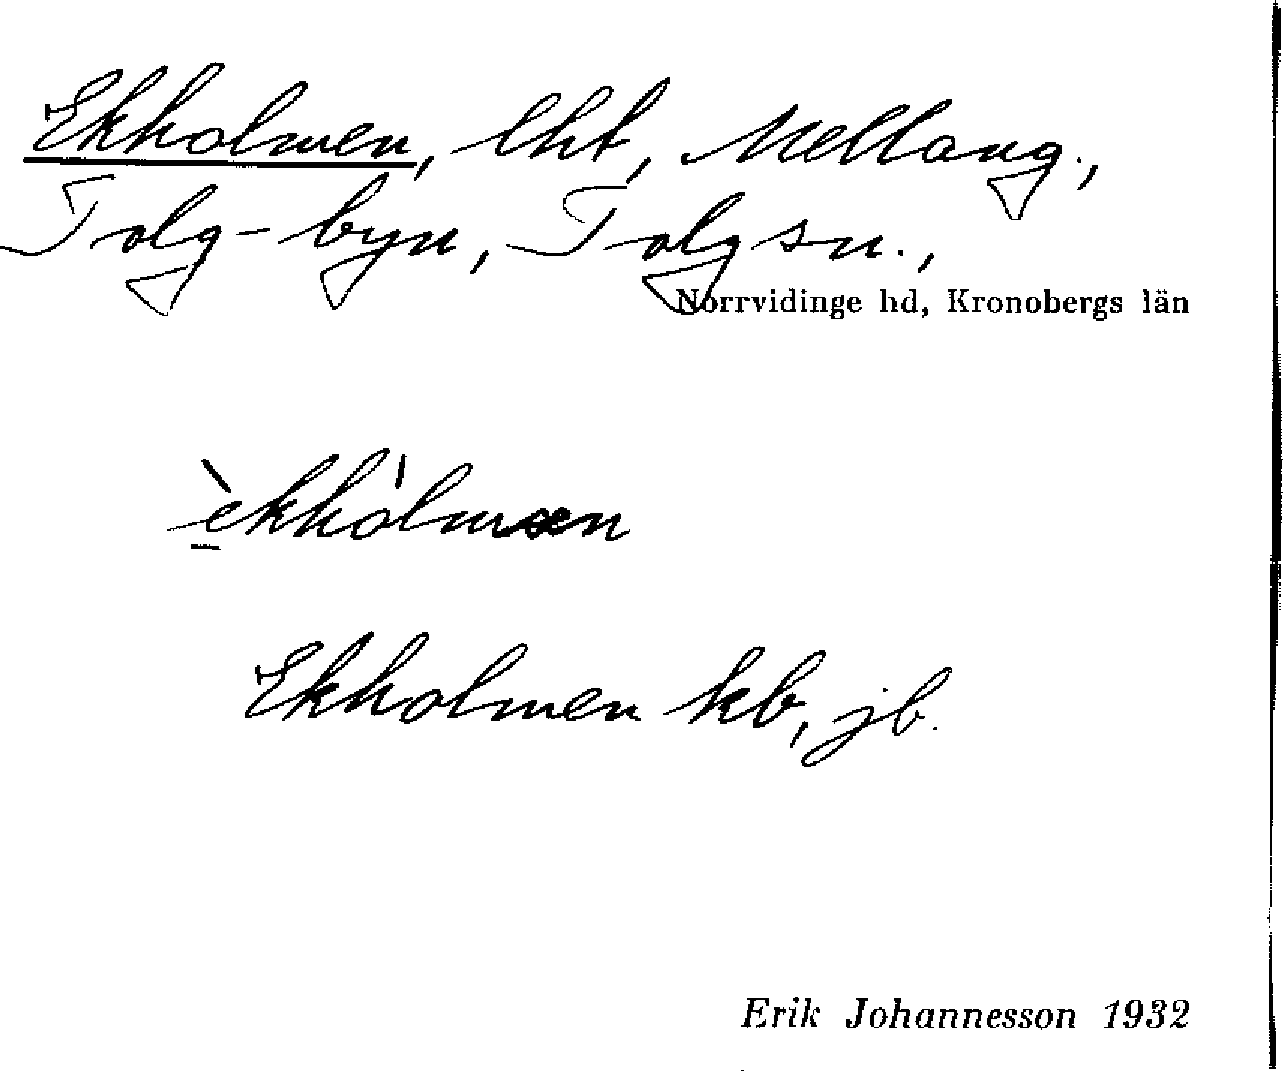 Ekholmen, lht, Mellang.,
Tolg-byn, Tolg sn.,
Norrvidinge hd, Kronobergs län
èkhòlmen
Ekholmen kb, jb.
Erik Johannesson 1932